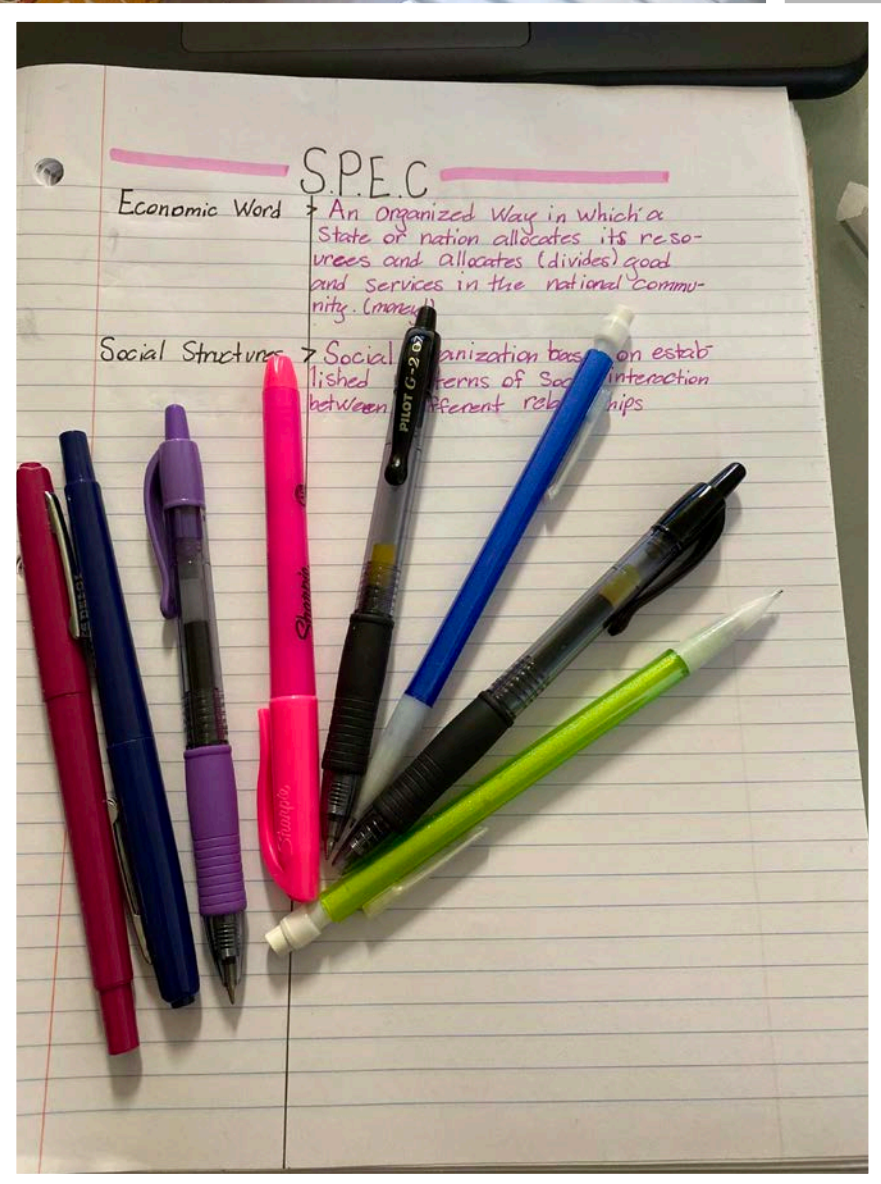 S.P.E.C
Economic Word > An organized way in which a
State or nation allocates its reso-
urces and allocates (divides) good
and services in the national commu-
nity. (money)
Social Structures > Social anization bas on estab-
lished terns of Soc interaction
between fferent rela hips
PILOT G-2 07
Sharpie
Sharpie